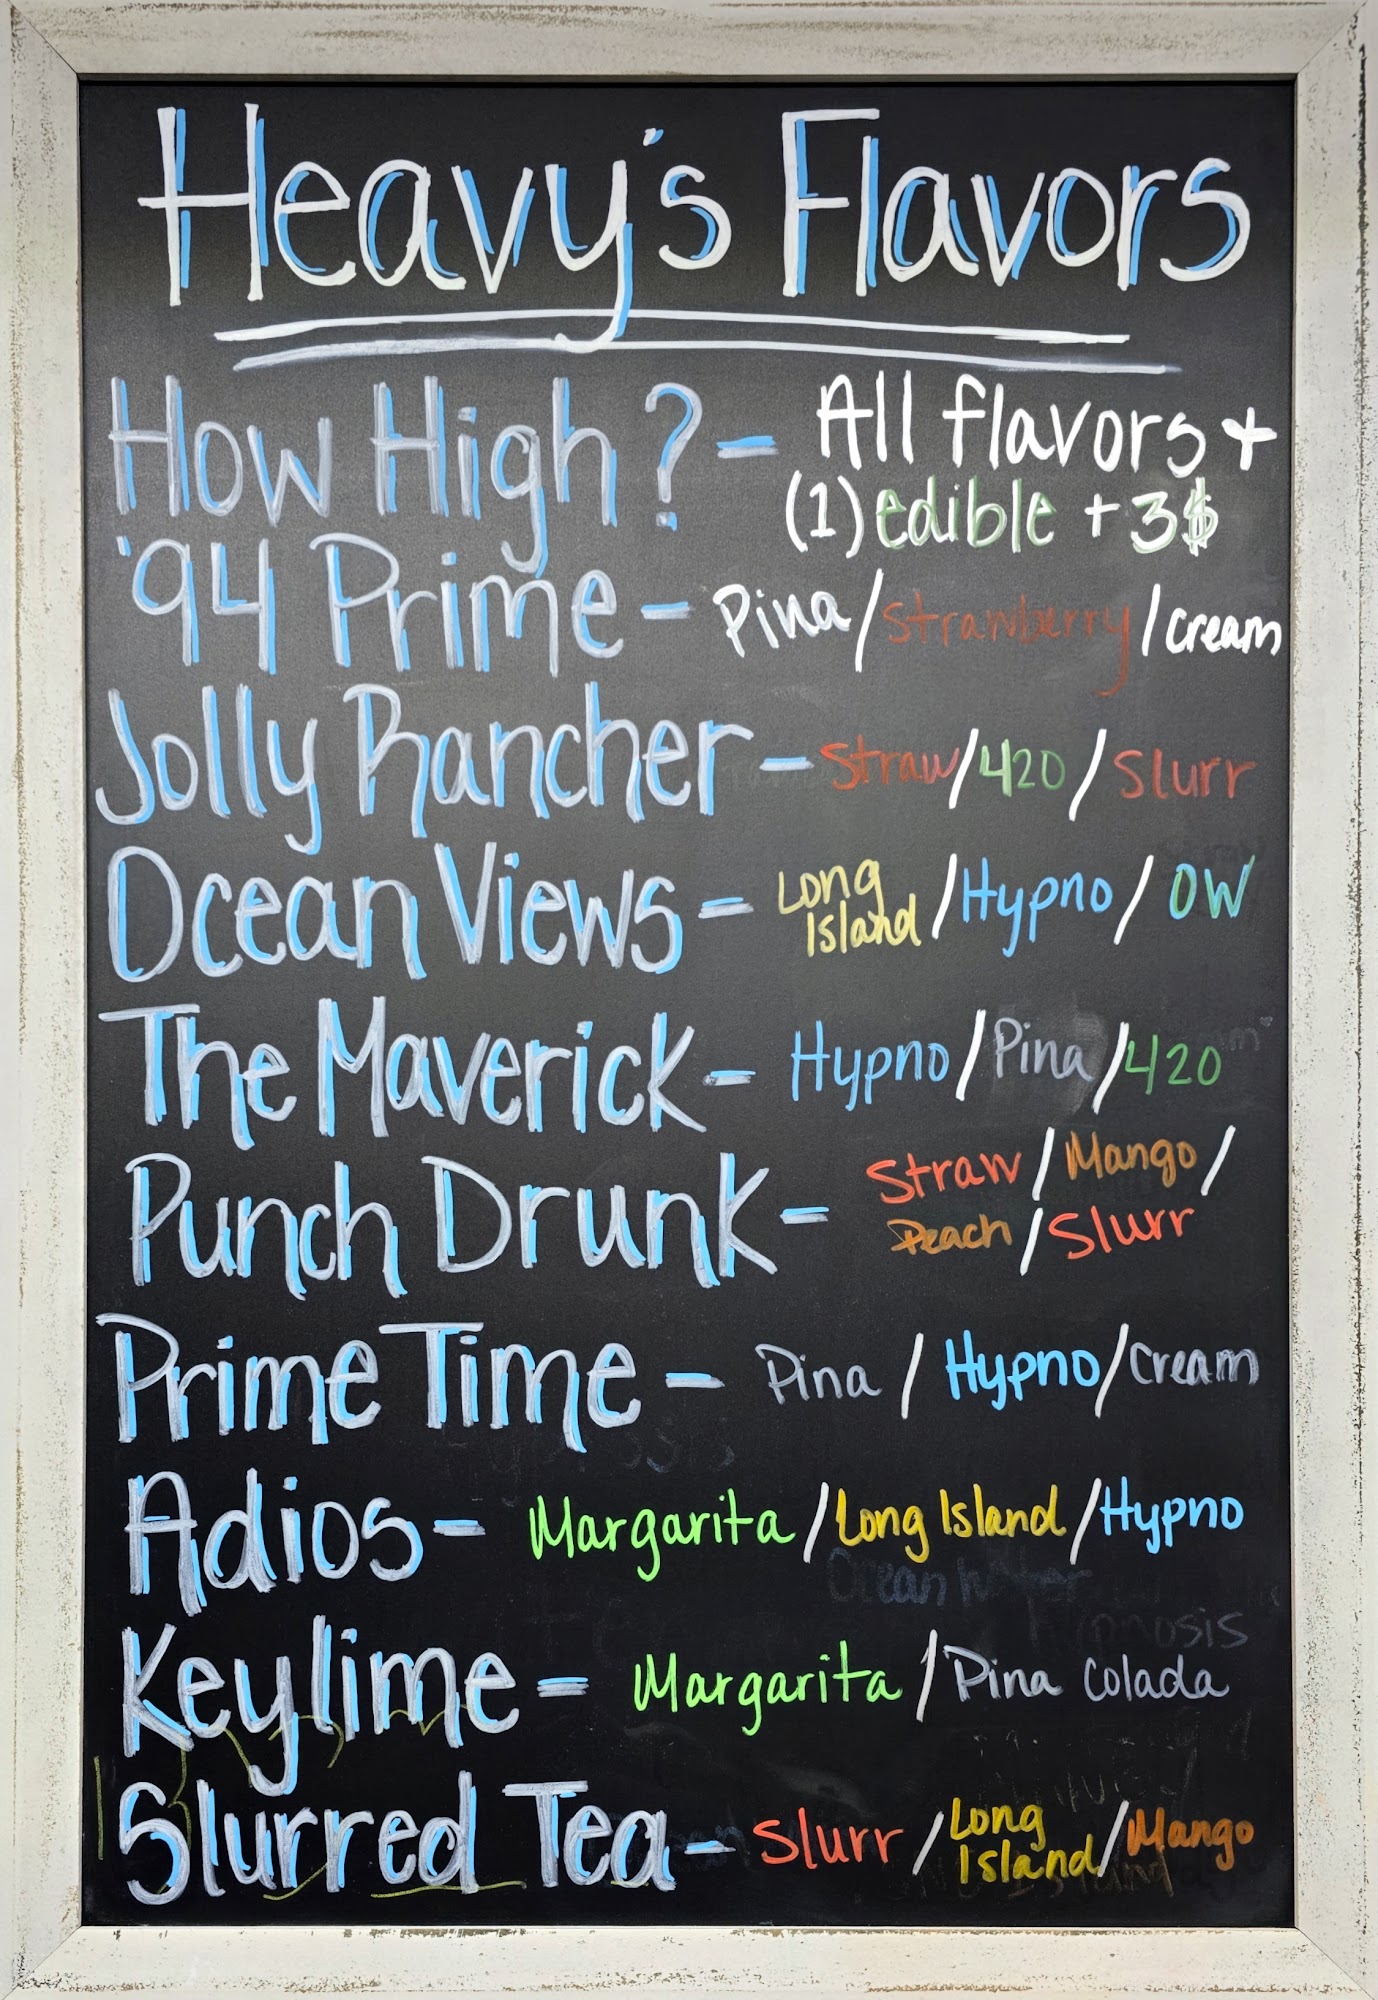 Heavy's Flavors
How High? - All flavors +
(1) edible + 3$
'94 Prime - Pina / Strawberry / cream
Jolly Rancher - Straw / 420 / Slurr
Ocean Views - Long Island / Hypno / OW
The Maverick - Hypno / Pina / 420
Punch Drunk - Straw / Mango /
Peach / Slurr
Prime Time - Pina / Hypno / cream
Adios - Margarita / Long Island / Hypno
Ocean Water
Hypnosis
Keylime - Margarita / Pina Colada
Slurred Tea - Slurr / Long Island / Mango